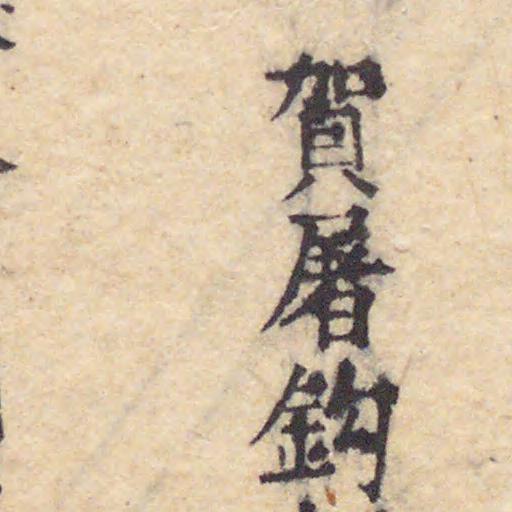 賀屠鈎